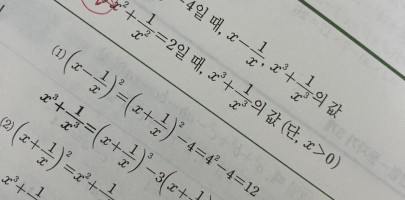 -4일 때, x-1/x, x³+1/x³의 값
x²+1/x²=2일 때, x³+1/x³의 값 (단, x>0)
(1) (x-1/x)²=(x+1/x)²-4=4²-4=12
x³+1/x³=(x+1/x)³-3(x+1/
(2) (x+1/x)²=x²+1/
x³+1/